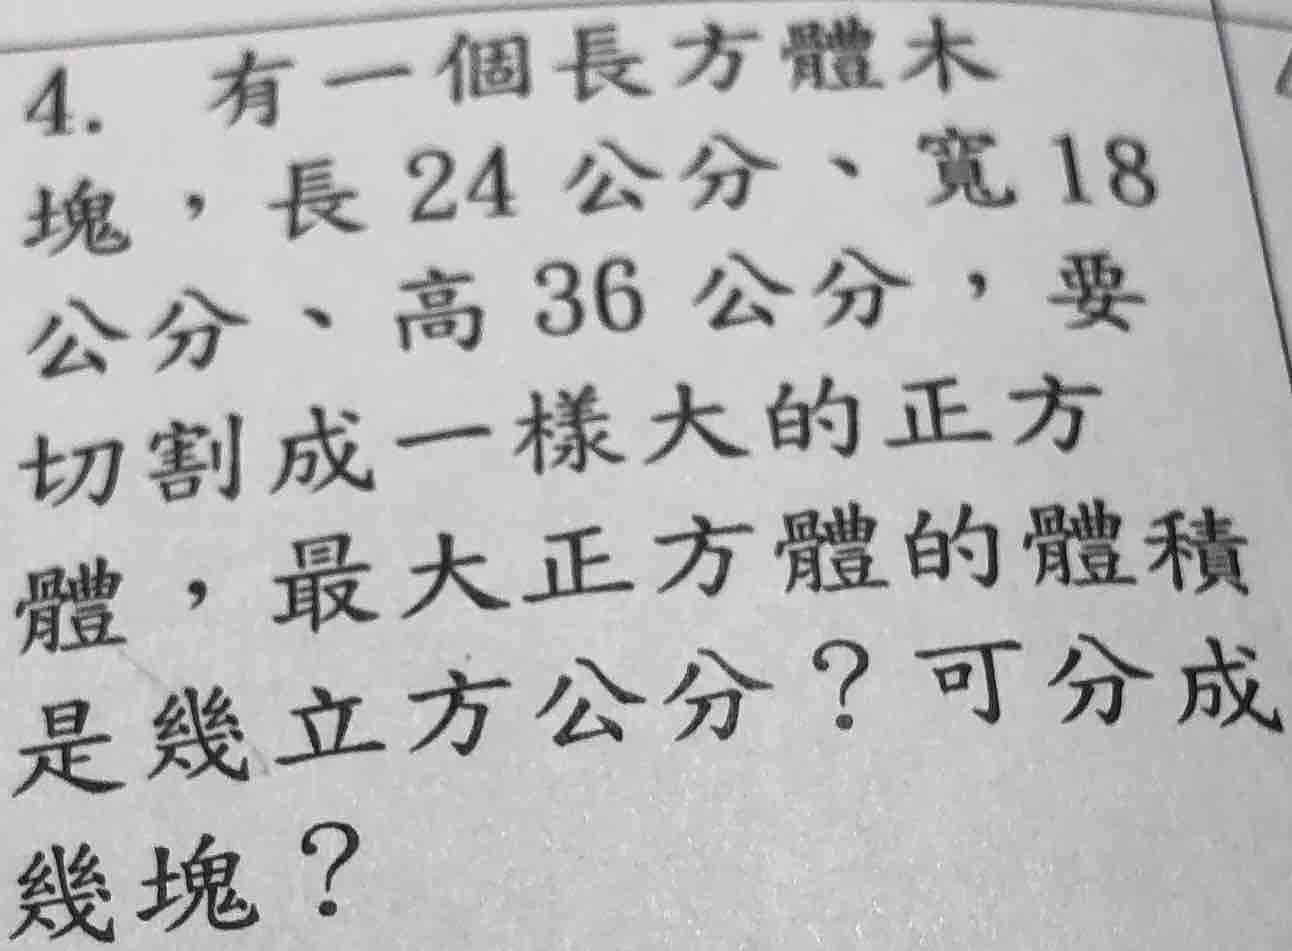 4. 有一個長方體木
塊，長 24 公分、寬 18
公分、高 36 公分，要
切割成一樣大的正方
體，最大正方體的體積
是幾立方公分？可分成
幾塊？